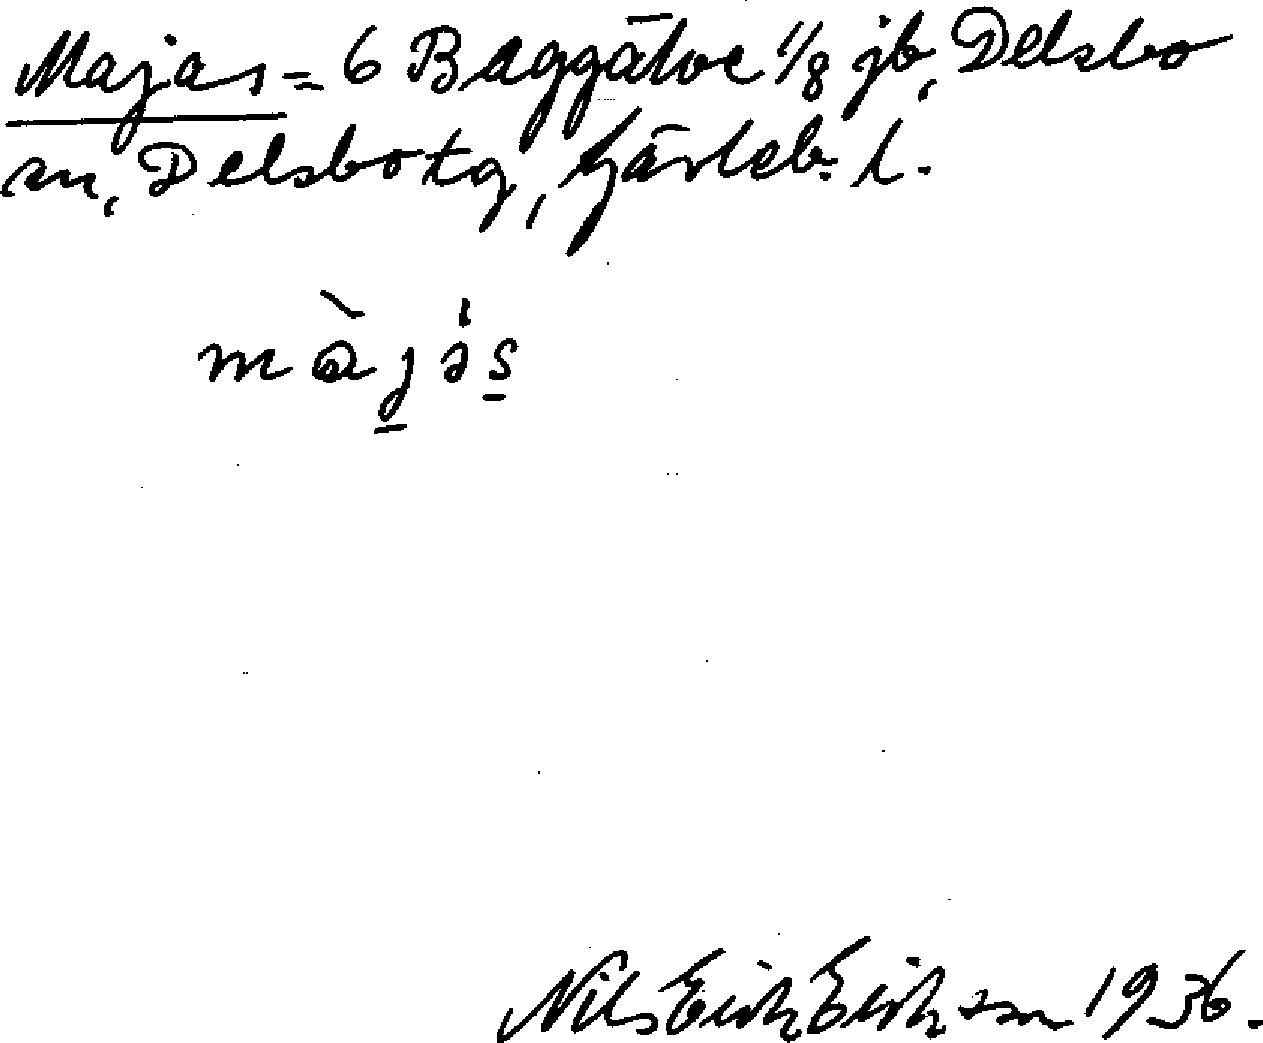 Majas = 6 Baggätve 1/8 jb, Delsbo
sn, Delsbo tg, Gävleb. l.
màjɘs
Nils Erik Eriksson 1936.